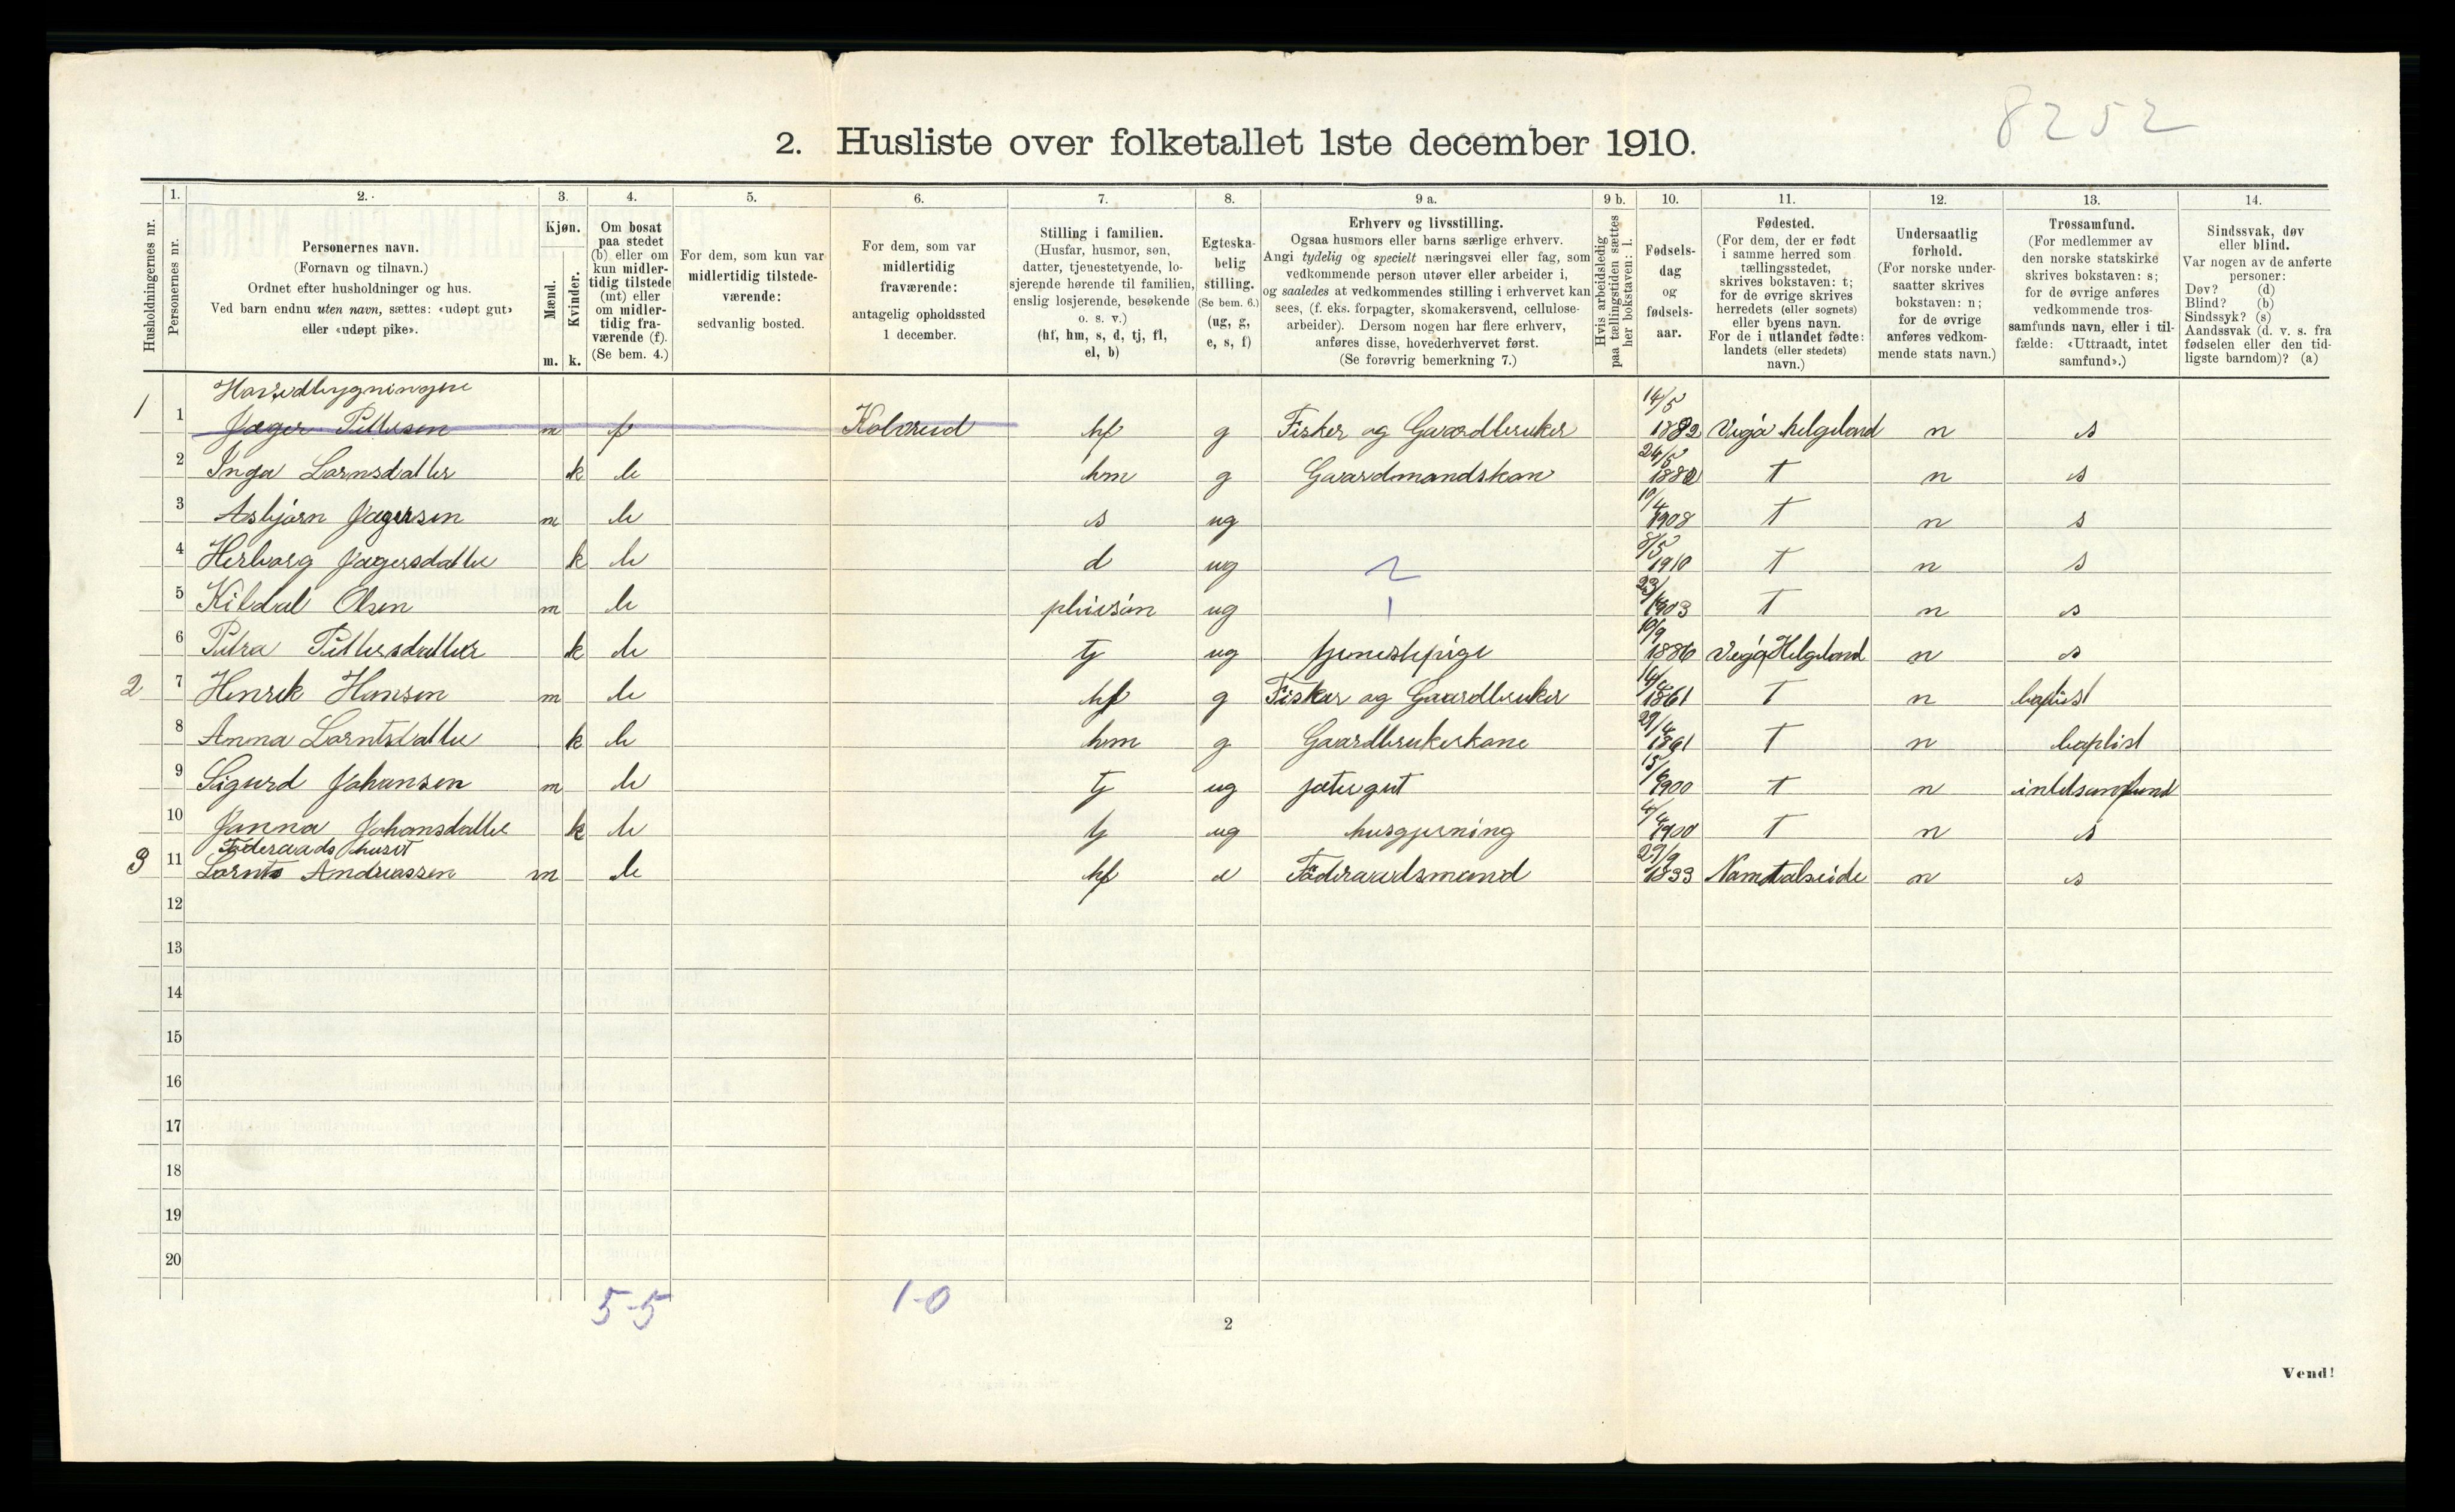 8252
2. Husliste over folketallet 1ste december 1910.
Husholdningernes nr.
1.
Personernes nr.
2.
Personernes navn.
(Fornavn og tilnavn.)
Ordnet efter husholdninger og hus.
Ved barn endnu uten navn, sættes: «udøpt gut»
eller «udøpt pike».
3.
Kjøn.
Mænd.
m.
Kvinder.
k.
4.
Om bosat
paa stedet
(b) eller om
kun midler-
tidig tilstede
(mt) eller
om midler-
tidig fra-
værende (f).
(Se bem. 4.)
5.
For dem, som kun var
midlertidig tilstede-
værende:
sedvanlig bosted.
6.
For dem, som var
midlertidig
fraværende:
antagelig opholdssted
1 december.
7.
Stilling i familien.
(Husfar, husmor, søn,
datter, tjenestetyende, lo-
sjerende hørende til familien,
enslig losjerende, besøkende
o. s. v.)
(hf, hm, s, d, tj, fl,
el, b)
8.
Egteska-
belig
stilling.
(Se bem. 6.)
(ug, g,
e, s, f)
9 a.
Erhverv og livsstilling.
Ogsaa husmors eller barns særlige erhverv.
Angi tydelig og specielt næringsvei eller fag, som
vedkommende person utøver eller arbeider i,
og saaledes at vedkommendes stilling i erhvervet kan
sees, (f. eks. forpagter, skomakersvend, cellulose-
arbeider). Dersom nogen har flere erhverv,
anføres disse, hovederhvervet først.
(Se forøvrig bemerkning 7.)
9 b.
Hvis arbeidsledig
paa tællingstiden sættes
her bokstaven: l.
10.
Fødsels-
dag
og
fødsels-
aar.
11.
Fødested.
(For dem, der er født
i samme herred som
tællingsstedet,
skrives bokstaven: t;
for de øvrige skrives
herredets (eller sognets)
eller byens navn.
For de i utlandet fødte:
landets (eller stedets)
navn.)
12.
Undersaatlig
forhold.
(For norske under-
saatter skrives
bokstaven: n;
for de øvrige
anføres vedkom-
mende stats navn.)
13.
Trossamfund.
(For medlemmer av
den norske statskirke
skrives bokstaven: s;
for de øvrige anføres
vedkommende tros-
samfunds navn, eller i til-
fælde: «Uttraadt, intet
samfund».)
14.
Sindssvak, døv
eller blind.
Var nogen av de anførte
personer:
Døv? (d)
Blind? (b)
Sindssyk? (s)
Aandssvak (d. v. s. fra
fødselen eller den tid-
ligste barndom)? (a)
Hovedbygningen
1 1 Jæger Pettersen m f Kolvereid hf g Fisker og Gaardbruker 14/5 1882 Vega helgeland n s
2 Inga Lorntsdatter k b hm g Gaardmandskone 24/5 1882 T n s
3 Asbjørn Jægersen m b s ug 10/4 1908 T n s
4 Herborg Jægersdatter k b d ug 2 8/5 1910 T n s
5 Kildal Olsen m b pleiesøn ug 1 1903 T n s
6 Petra Pettersdatter k b tj ug tjenestepige 10/9 1886 Vega Helgeland n s
2 7 Henrik Hansen m b hf g Fisker og Gaardbruker 1861 T n baptist
8 Anna Lorntsdatter k b hm g Gaardbrukerkone 29/4 1861 T n baptist
9 Sigurd Johansen m b tj ug jætergut 15/6 1900 T n intetsamfund
10 Janna Johansdatter k b tj ug husgjerning 4/4 1900 T n s
Föderaads huset
3 11 Lornts Andreassen m b hf e Föderaadsmand 29/9 1833 Namdalseide n s
12
13
14
15
16
17
18
19
20
5-5 1-0
2
Vend!